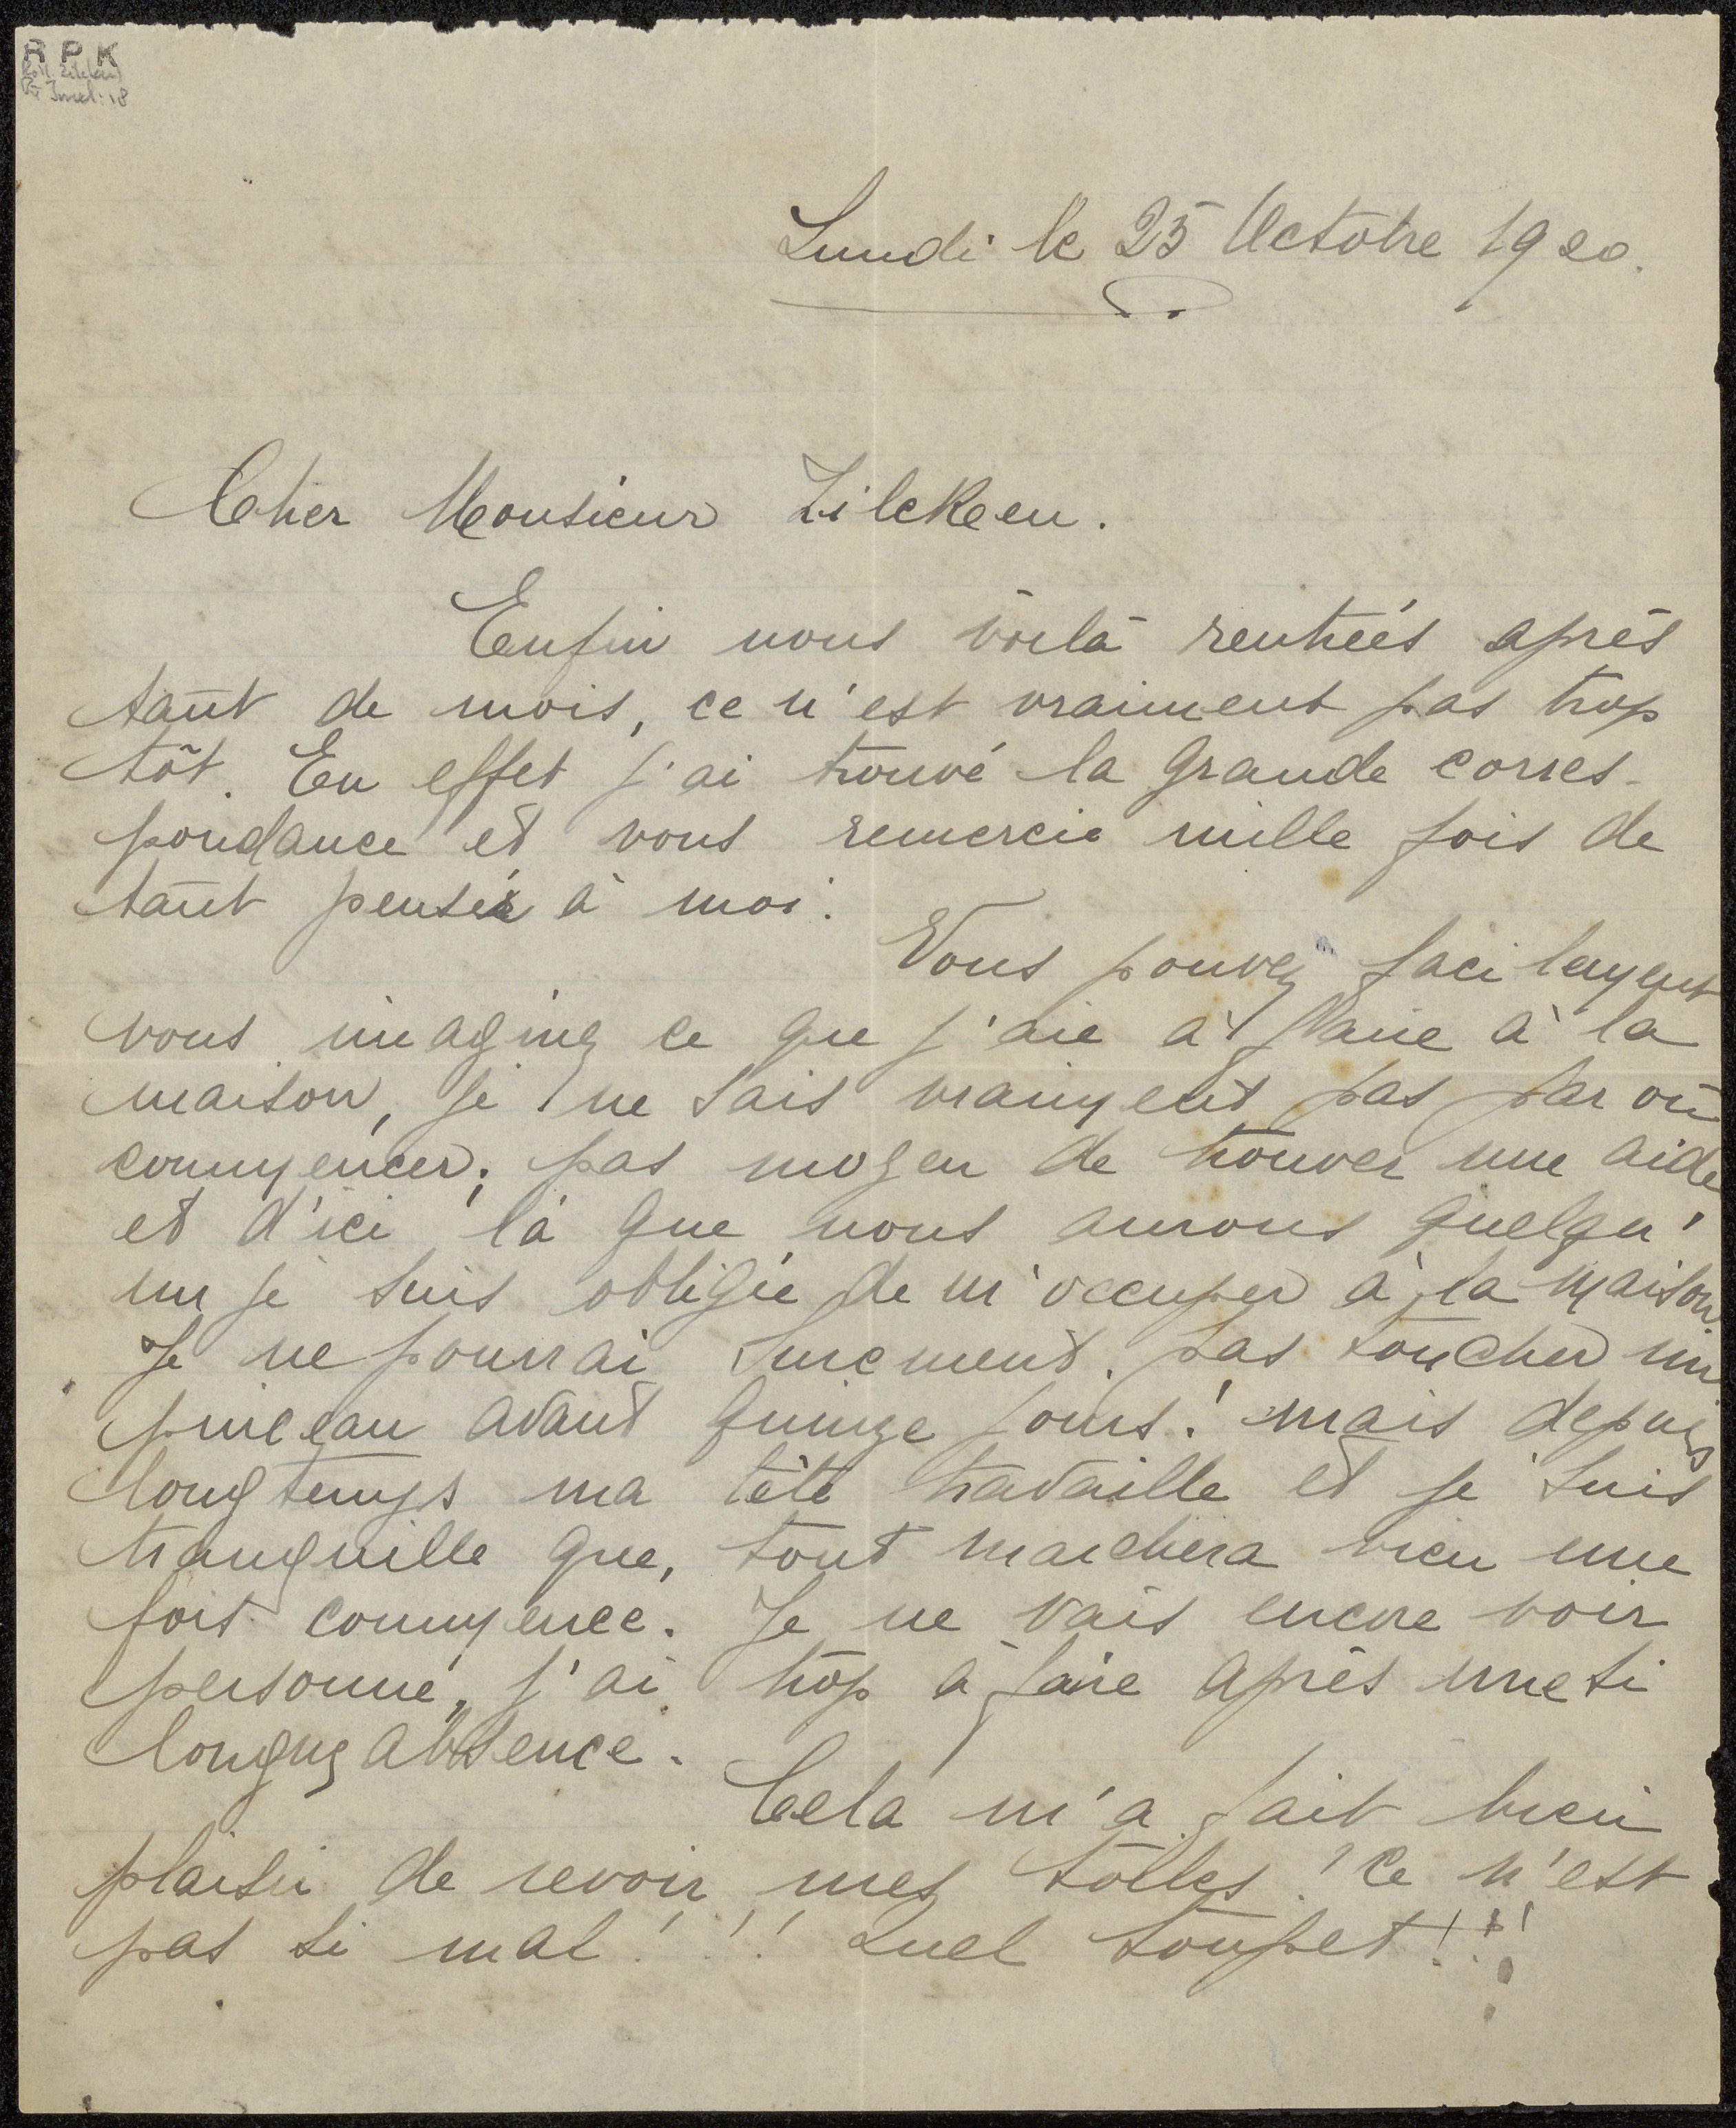 R P K
Lundi le 25 Octobre 1920.
Cher Monsieur Zilckeen.
Enfin nous voilà rentrées après
tant de mois, ce n'est vraiment pas trop
tôt. En effet j'ai trouvé la grande corres-
pondance et vous remercie mille fois de
tant pensér à moi.
Vous pouvez facilement
vous imaginez ce que j'aie à faire à la
maison, je ne sais vraiment pas par où
commencer; pas moyen de trouver une aide
et d'ici là que nous aurons quelqu'
un je suis obligée de m'occuper à la maison.
Je ne pourrai surement pas toucher un
pinceau avant quinze jours! mais depuis
longtemps ma tête travaille et je suis
tranquille que, tout marchera bien une
fois commence. Je ne vais encore voir
personne, j'ai trop à faire après une si
longue absence.
Cela m'a fait bien
plaisir de revoir mes toiles! Ce n'est
pas si mal!!! Quel toupet!!!